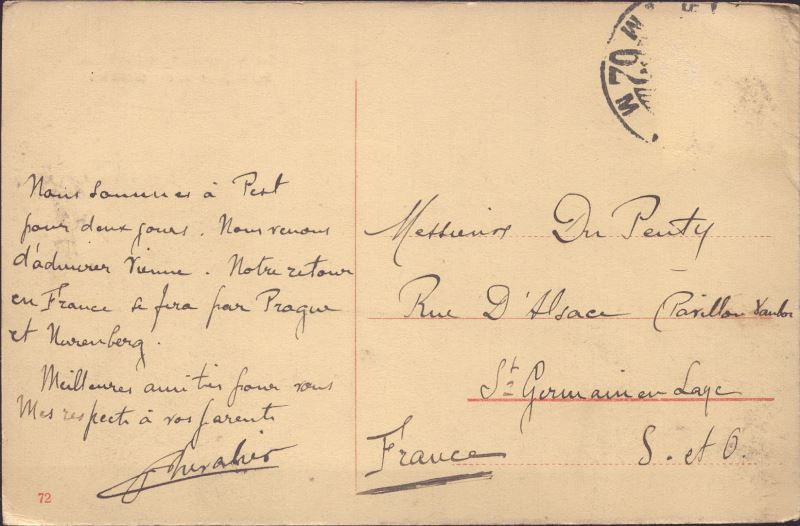 Nous sommes à Pest
pour deux jours. Nous venons
d'admirer Vienne. Notre retour
en France se fera par Prague
et Nurenberg.
Meilleures amitiés pour vous
Mes respects à vos parents
72
M 79 M
Messieurs Du Penty
Rue D'Alsace (Pavillon Vauban
St Germain en Laye
S. et O.
France